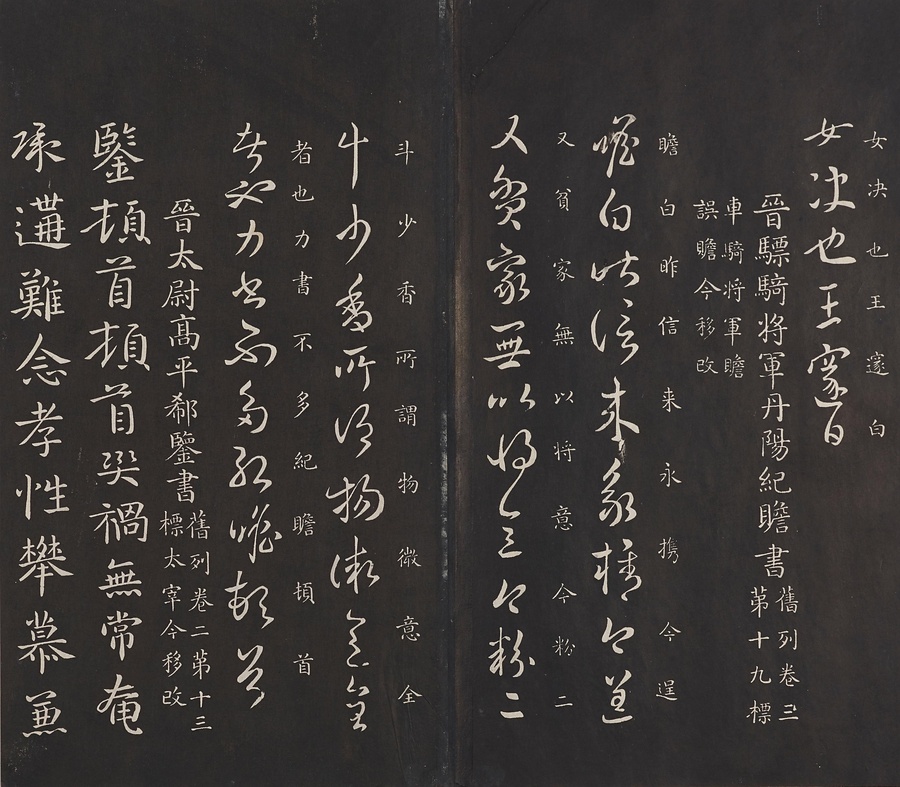 女决也王邃白
女决也王邃白
晉驃騎將軍丹陽紀瞻書
舊列卷三
第十九標
車騎將軍瞻
誤瞻今移改
瞻白昨信来永携今逞
瞻白昨信来永携今逞
又貧家無以将意今粉二
又貧家無以将意今粉二
斗少香所謂物微意全
斗少香所謂物微意全
者也力書不多紀瞻頓首
者也力書不多紀瞻頓首
晉太尉高平郗鑒書
舊列卷二第十三
標太宰今移改
鑒頓首頓首災禍無常奄
承遘難念孝性攀慕兼